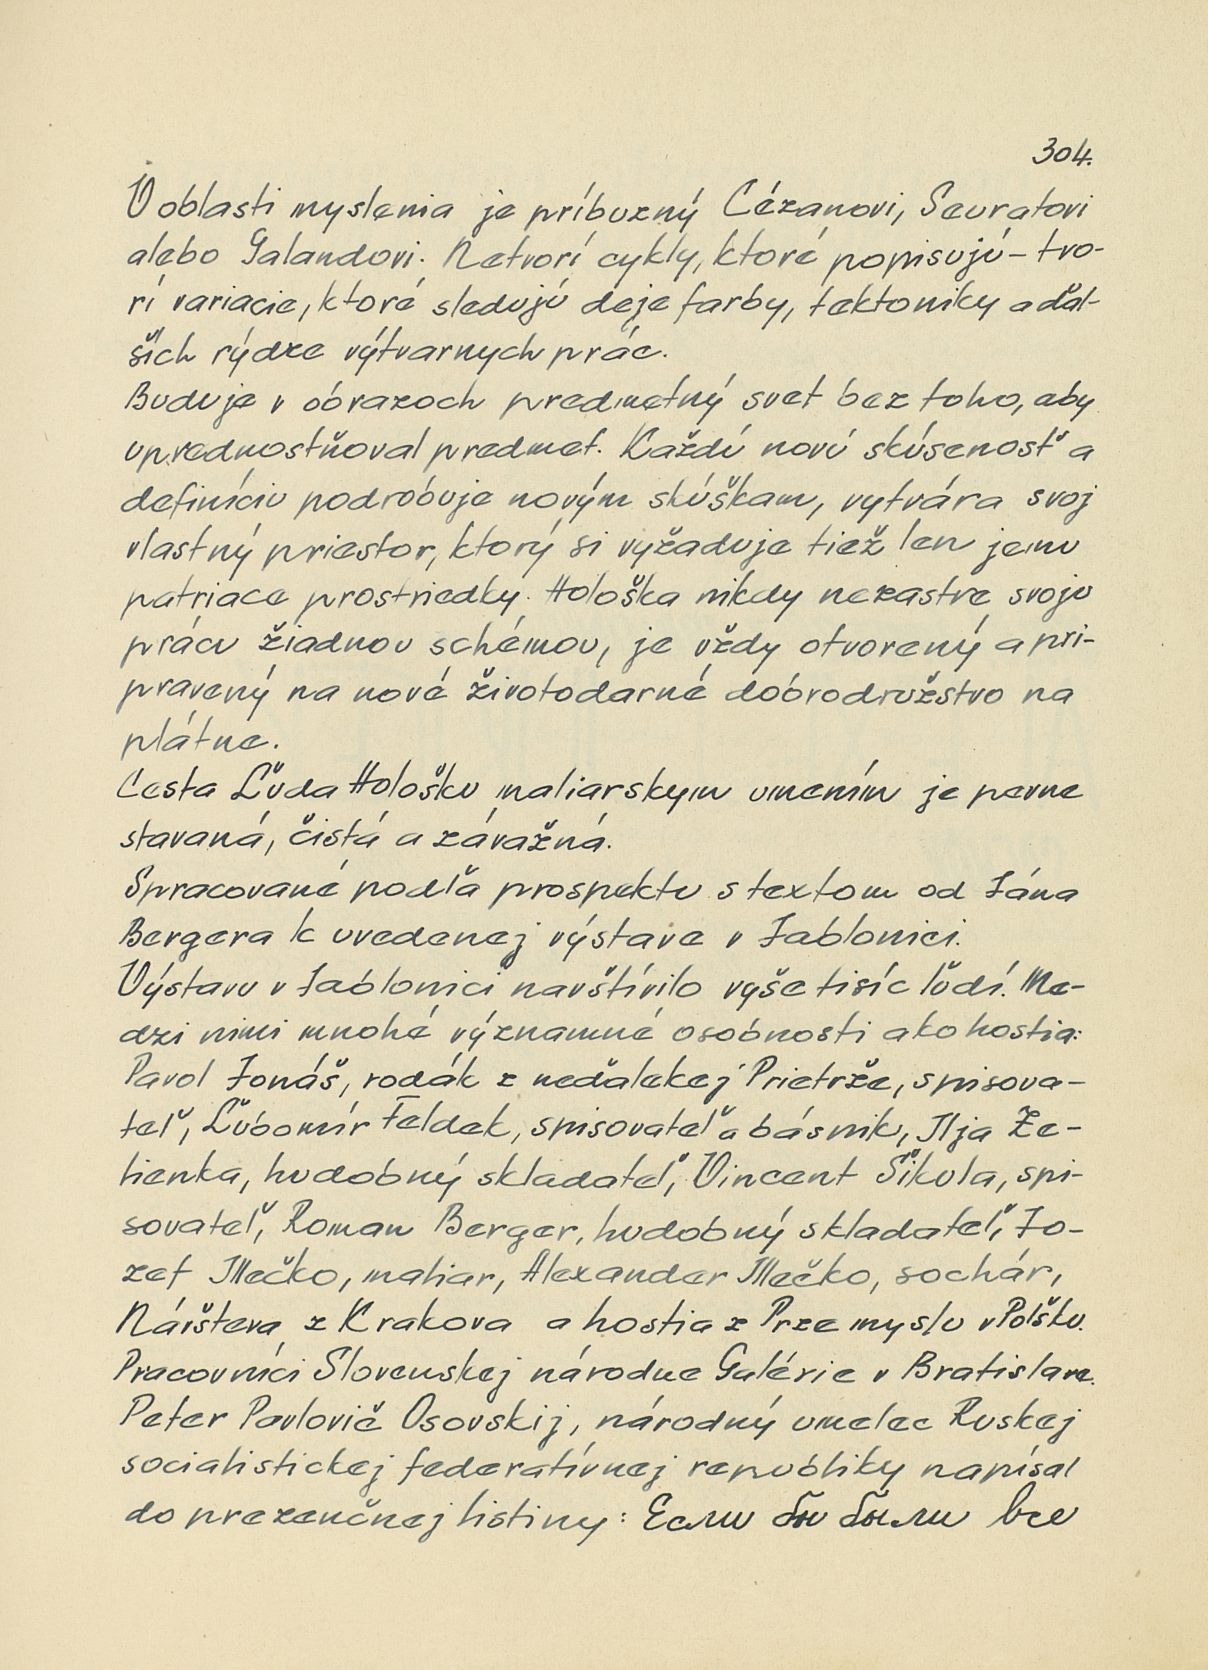 304.
V oblasti myslenia je príbuzný Cézanovi, Seuratovi
alebo Galandovi. Netvorí cykly, ktoré popisujú – tvo-
rí variacie, ktoré sledujú deje farby, tektoniky a ďal-
ších rýdze výtvarnych prác.
Buduje v obrazoch predmetný svet bez toho, aby
uprednostňoval predmet. Každú novú skúsenosť a
definíciu podrobuje novým skúškam, vytvára svoj
vlastný priestor, ktorý si vyžaduje tiež len jemu
patriace prostriedky. Hološka nikdy nezastre svoju
prácu žiadnou schémou, je vždy otvorený a pri-
pravený na nové životodarné dobrodružstvo na
plátne.
Cesta Ľuda Hološku maliarskym umením je pevne
stavaná, čistá a závažná.
Spracované podľa prospektu s textom od Jána
Bergera k uvedenej výstave v Jablonici.
Výstavu v Jablonici navštívilo vyše tisíc ľudí. Me-
dzi nimi mnohé významné osobnosti ako hostia:
Pavol Jonáš, rodák z neďalekej Prietrže, spisova-
teľ, Ľubomír Feldek, spisovateľ a básnik, Ilja Ze-
lienka, hudobný skladateľ, Vincent Šikula, spi-
sovateľ, Roman Berger, hudobný skladateľ, Jo-
zef Ilečko, maliar, Alexander Ilečko, sochár,
Návšteva z Krakova a hostia z Przemyslu v Poľsku.
Pracovníci Slovenskej národne Galérie v Bratislave.
Peter Pavlovič Osovskij, národný umelec Ruskej
socialistickej federatívnej republiky napísal
do prezenčnej listiny: Если бы были все